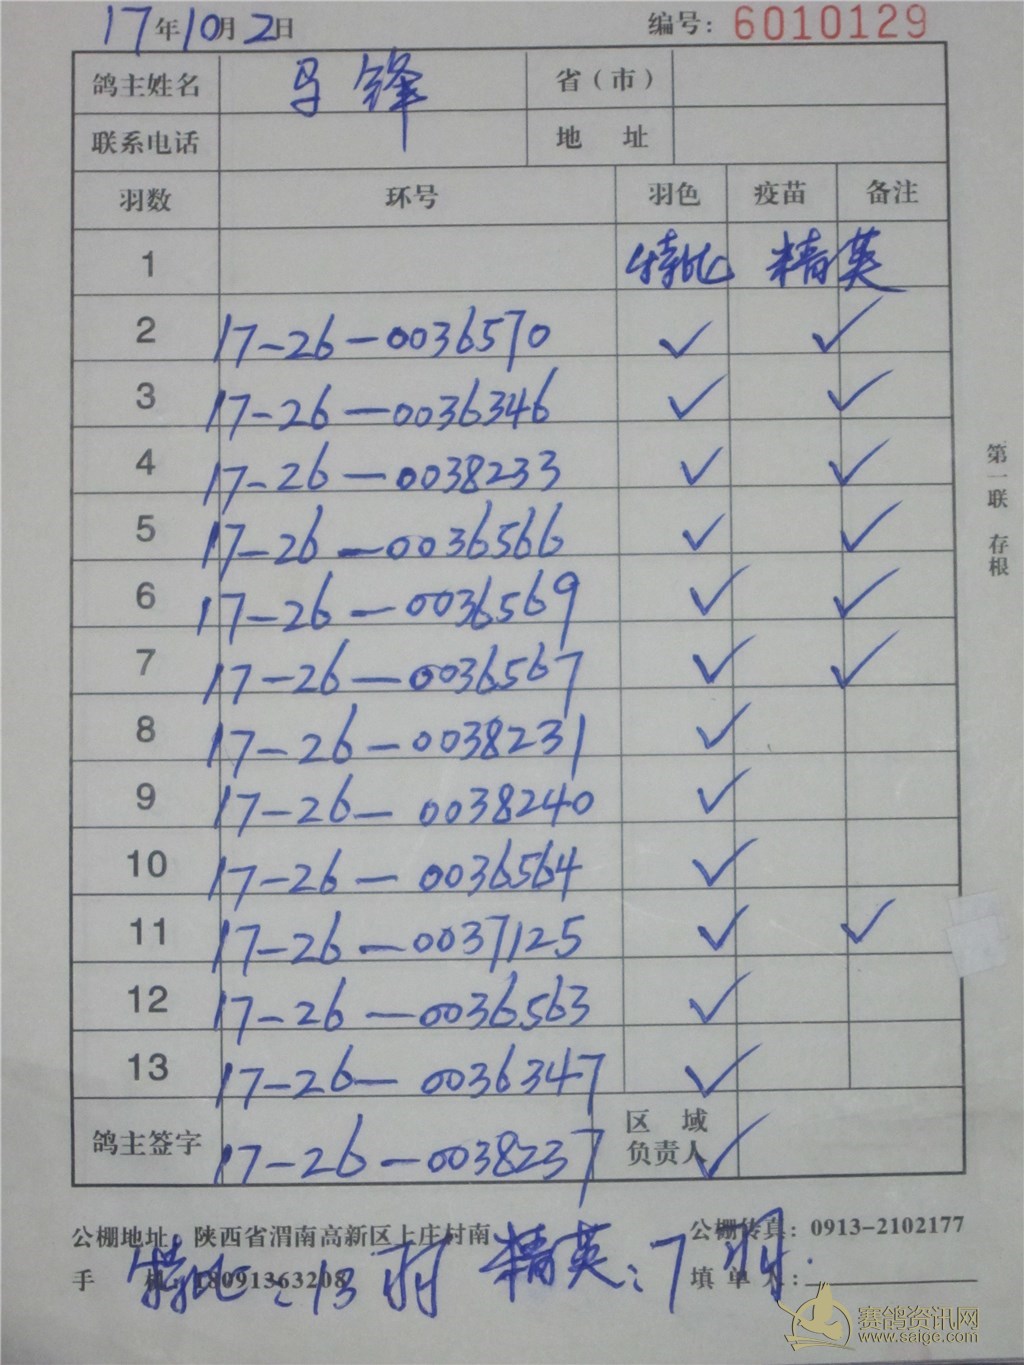 17年10月2日 编号: 6010129
鸽主姓名 马锋 省(市)
联系电话 地 址
羽数 环号 羽色 疫苗 备注
1 特比 精英
2 17-26-0036570 ✓ ✓
3 17-26-0036346 ✓ ✓
4 17-26-0038233 ✓ ✓
5 17-26-0036566 ✓ ✓
6 17-26-0036569 ✓ ✓
7 17-26-0036567 ✓ ✓
8 17-26-0038231 ✓
9 17-26-0038240 ✓
10 17-26-0036564 ✓
11 17-26-0037125 ✓ ✓
12 17-26-0036563 ✓
13 17-26-0036347 ✓
鸽主签字 17-26-0038237 区 域 负责人 ✓
第一联 存根
公棚地址: 陕西省渭南高新区上庄村南 公棚传真: 0913-2102177
手 机: 18091363208 填单人:
特比:13羽 精英:7羽.
赛鸽资讯网
www.saige.com